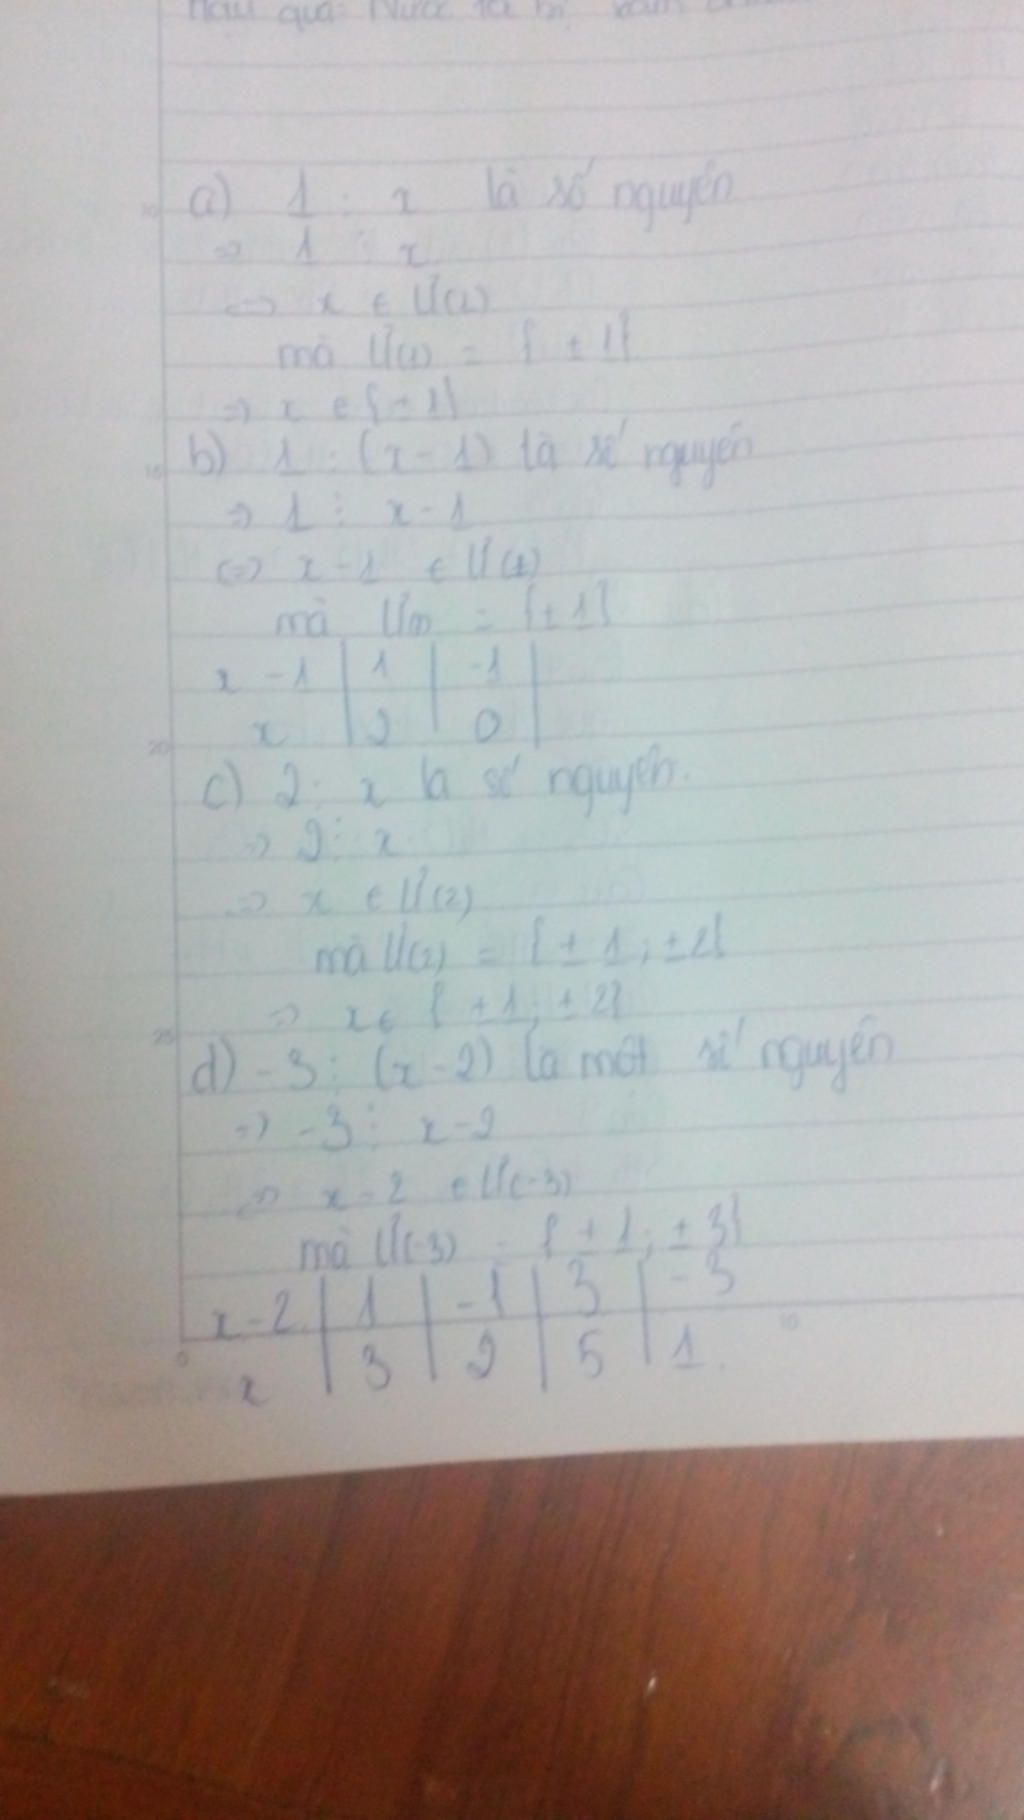 Hậu quả: Nước ta bị
a) 1 : x là số nguyên
=> 1 ⋮ x
=> x ∈ Ư(1)
mà Ư(1) = { ± 1}
=> x ∈ {± 1}
b) 1 : (x - 1) là số nguyên
=> 1 ⋮ x - 1
<=> x - 1 ∈ Ư(1)
mà Ư(1) = {± 1}
x - 1 | 1 | -1 |
x | 2 | 0 |
20
c) 2 : x là số nguyên.
=> 2 ⋮ x
=> x ∈ Ư(2)
mà Ư(2) = { ± 1 ; ±2}
=> x ∈ { ± 1 ; ± 2}
25
d) -3 : (x - 2) là một số nguyên
=> -3 ⋮ x - 2
=> x - 2 ∈ Ư(-3)
mà Ư(-3) = { ± 1 ; ± 3}
x - 2 | 1 | -1 | 3 | -3
x | 3 | 2 | 5 | 1.
0 10